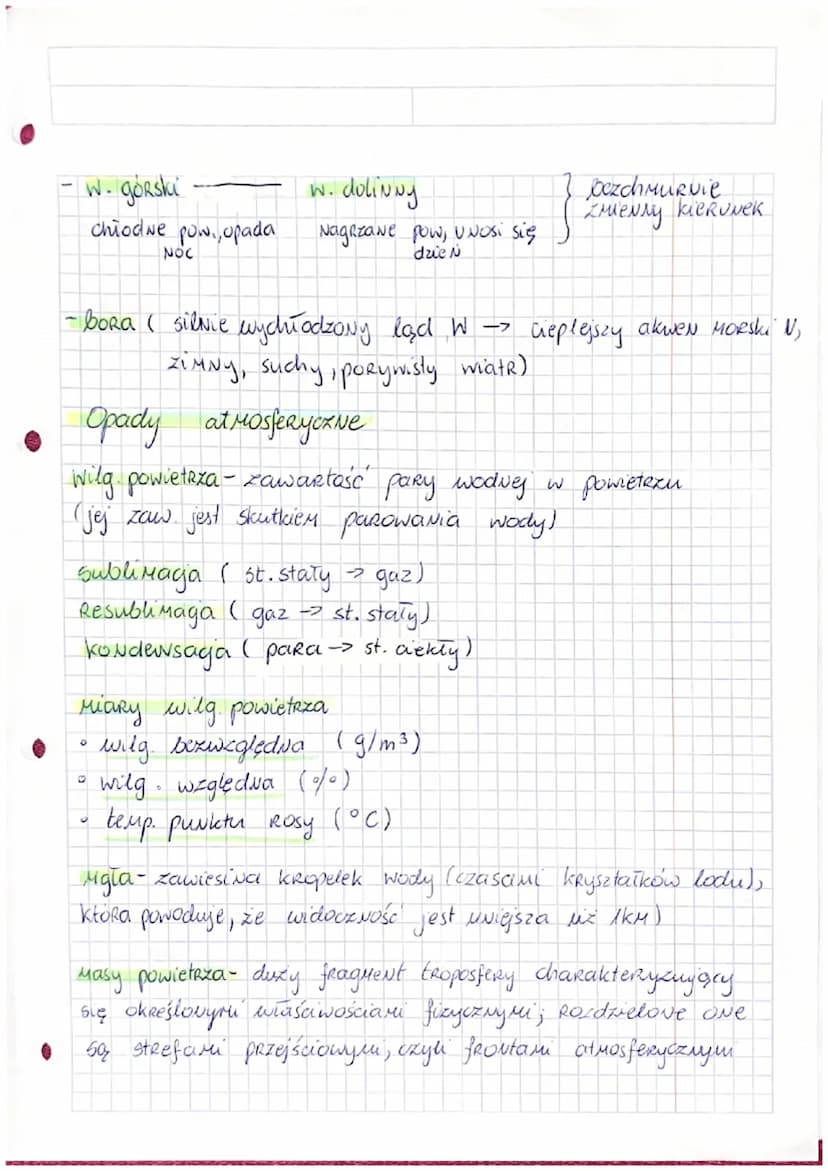 - w. górski — w. dolinny } bezchmurnie
zmienny kierunek
chłodne pow., opada nagrzane pow, unosi się
noc dzień
- bora ( silnie wychłodzony ląd W -> cieplejszy akwen morski N,
zimny, suchy, porywisty wiatr)
Opady atmosferyczne
Wilg. powietrza - zawartość pary wodnej w powietrzu
(jej zaw. jest skutkiem parowania wody)
sublimacja ( st. stały -> gaz)
Resublimacja ( gaz -> st. stały)
kondensacja ( para -> st. ciekły)
miary wilg. powietrza
• wilg. bezwzględna (g/m³)
• wilg. względna (%)
• temp. punktu rosy (°C)
mgła - zawiesina kropelek wody (czasami kryształków lodu),
która powoduje, że widoczność jest mniejsza niż 1km)
masy powietrza - duży fragment troposfery charakteryzujący
się określonymi właściwościami fizycznymi; rozdzielone one
są strefami przejściowymi, czyli frontami atmosferycznymi